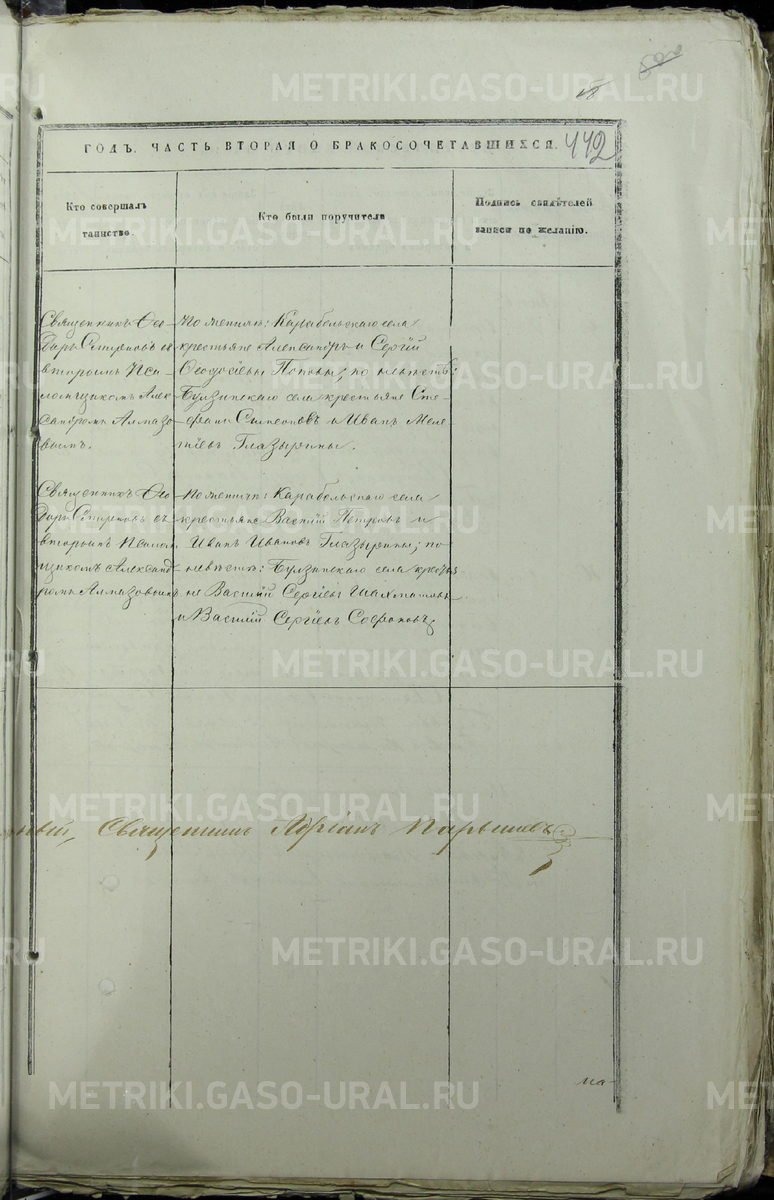 ГОДЪ, ЧАСТЬ ВТОРАЯ О БРАКОСОЧЕТАВШИХСЯ.
442
Кто совершалъ
таинство.
Кто были поручители
Подпись свидѣтелей
записи по желанію.
Священникъ Ѳео-
доръ Смирновъ съ
вторымъ Псал-
ломщикомъ Алек-
сандромъ Алмазо-
вымъ.
По женихѣ: Карабольскаго села
крестьяне Александръ и Сергій
Ѳеодосіевы Поповы; по невѣстѣ:
Булзинскаго села крестьяне Сте-
фанъ Симеоновъ и Иванъ Меле-
тіевъ Глазырины.
Священникъ Ѳео-
доръ Смирновъ съ
вторымъ Псалом-
щикомъ Александ-
ромъ Алмазовымъ
По женихѣ: Карабольскаго села
крестьяне Василій Петровъ и
Иванъ Ивановъ Глазырины; по
невѣстѣ: Булзинскаго села крестья-
не Василій Сергіевъ Шахматовъ
и Василій Сергіевъ Софоновъ
Священникъ Адріанъ
METRIKI.GASO-URAL.RU